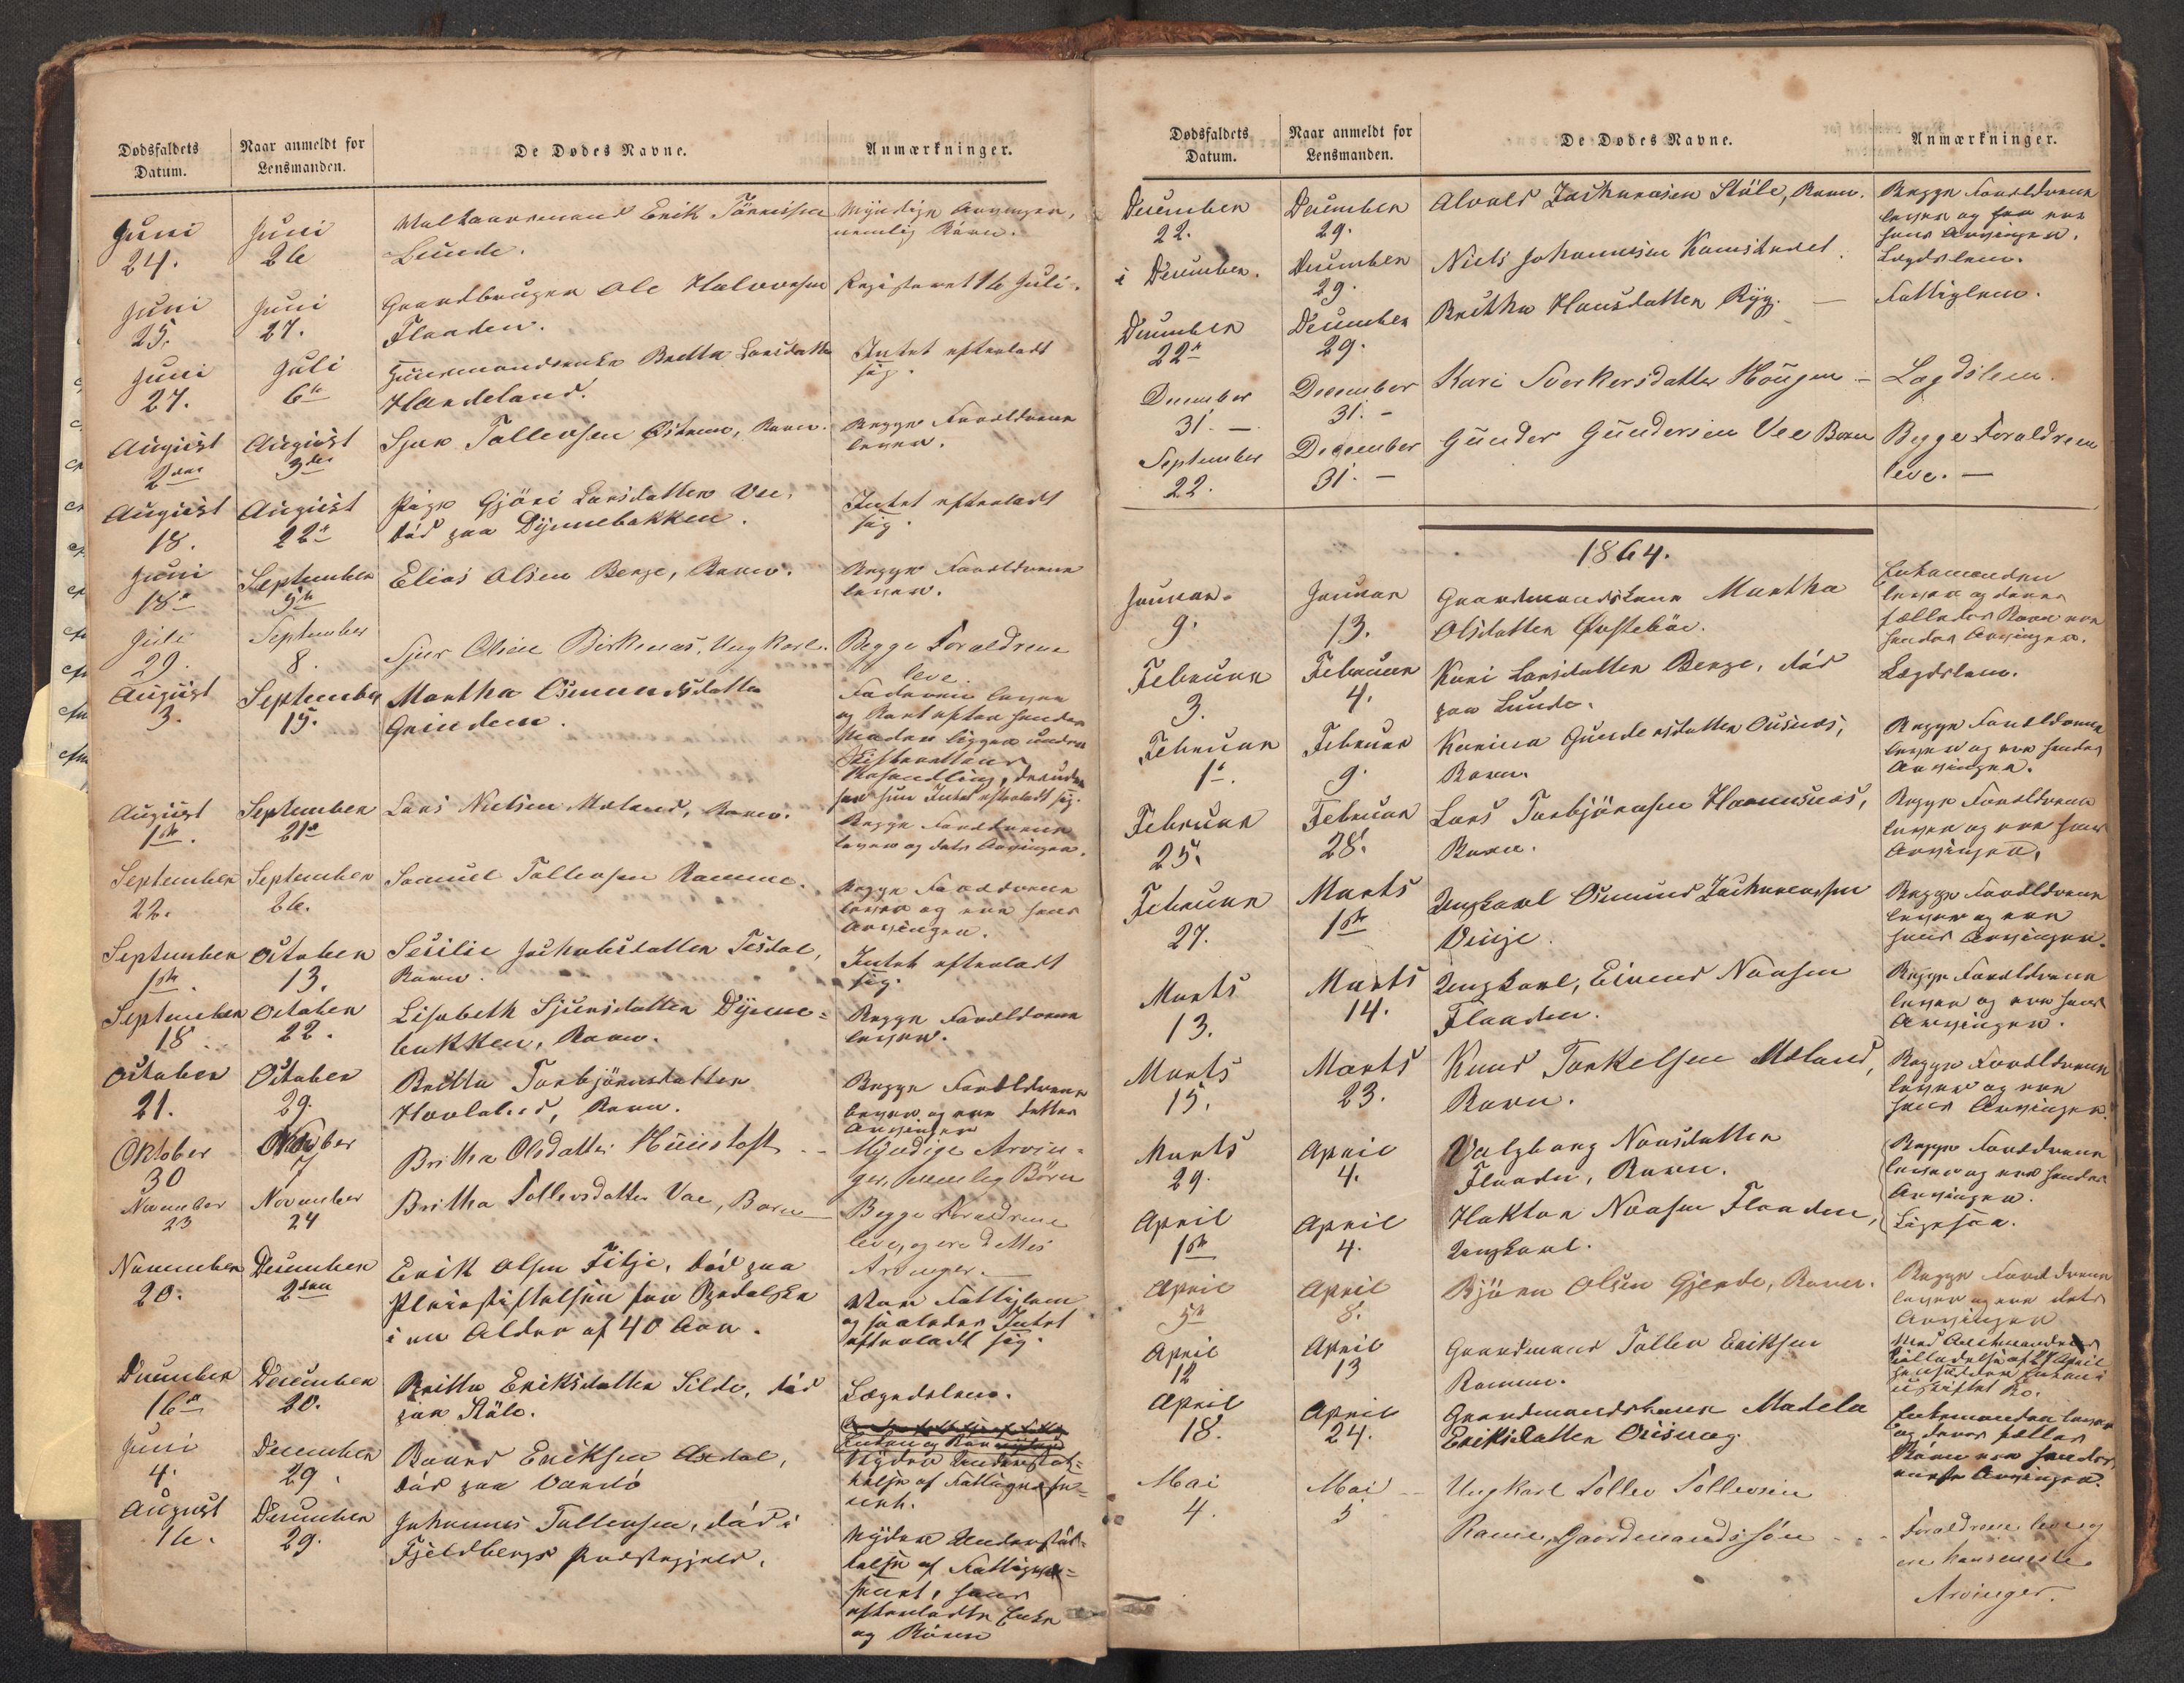 Dødsfaldets
Datum.
Naar anmeldt for
Lensmanden.
De Dødes Navne.
Anmærkninger.
Juni
24.
Juni
26
Erik Tönnissen
Lunde.
Myndige Arvinger,
nemlig Börn.
Juni
25.
Juni
27.
Gaardbruger Ole Halvorsen
Flaaden.
Registeret 16 Juli.
Juni
27.
Juli
6te
Huusmandsenke Britta Larsdatter
Handeland.
Intet efterladt
sig.
August
2den
August
3die
Sjur Tollevsen Østrem, Barn.
Begge Forældrene
lever.
August
18.
August
22de
Pige Gjöri Larsdatter Vee,
död paa Dÿnnebakken.
Intet efterladt
sig.
Juni
18de
September
5te
Elias Olsen Berge, Barn.
Begge Forældrene
lever.
Juli
29.
September
8.
Sjur Olsen Birkenæs, Ungkarl.
Begge Forældrene
leve.
August
3.
September
15.
Martha Osmundsdatter
Grinden.
Faderen lever
og Boet efter hendes
Moder ligger under
Skifterettens
Behandling, desuden
har hun Intet efterladt sig.
August
1ste.
September
21de
Lars Nielsen Mæland, Barn.
Begge Forældrene
lever og dets Arvinger.
September
22.
September
26.
Samuel Tollevsen Ramme.
Begge Forældrene
lever og ere hans
Arvinger.
September
1ste.
October
13.
Sesilie Jakobsdatter Tesdal,
Barn.
Intet efterladt
sig.
September
18
October
22.
Lisabeth Sjursdatter Dÿnne=
bakken, Barn.
Begge Forældrene
lever.
October
21.
October
29.
Britta Torbjörnsdatter
Havlaland, Barn.
Begge Forældrene
lever og ere dettes
Arvinger
Oktober
30
7
Britha Olsdatter Huustoft
Myndige Arvin=
ger, nemlig Börn
November
23
November
24
Britha Tollevsdatter Vae, Barn
Begge Forældrene
leve, og ere dettes
Arvinger.
November
20.
December
2den
Erik Olsen Fitje, död paa
Pleiestiftelsen
i en Alder af 40 Aar.
Var Fattiglem
og saaledes Intet
efterladt sig.
December
16de
December
20.
Britta Eriksdatter Silde, död
paa Stöle.
Lægdslem.
Juni
4.
December
29.
Baard Eriksen Axdal,
död paa Vandö
Enken og Börn
Nyder Understöt=
telse af Fattigvæse=
net.
August
16.
December
29.
Johannes Tollevsen, död i
Fjeldbergs Præstegjeld.
Nyder Understöt=
telse af Fattigvæ=
senet, hans
efterladte Enke
og Börn
Dødsfaldets
Datum.
Naar anmeldt for
Lensmanden.
De Dødes Navne.
Anmærkninger.
December
22.
December
29.
Alvald Zachariasen Stöle, Barn.
Begge Forældrene
lever og ere
hans Arvinger.
i December.
December
29.
Niels Johannesen Kamstvedt.
Lægdslem.
December
22de
December
29.
Britha Hansdatter Ryg. —
Fattiglem.
December
31. —
December
31. —
Kari Sverkersdatter Hougen —
Lægdslem.
September
22.
December
31. —
Gunder Gundersen Vee Barn
Begge Foraldrene
leve. —
1864.
Januar
9.
Januar
13.
Gaardmandskone Martha
Olsdatter Övstebøe.
Enkemanden
lever og deres
fælleds Börn ere
hendes Arvinger.
Februar
3.
Februar
4.
Kari Larsdatter Berge, död
paa Lunde.
Lægdslem.
Februar
1ste.
Februar
9.
Karina Gundersdatter Ousnæs,
Barn.
Begge Forældrene
lever og ere hendes
Arvinger.
Februar
25.
Februar
28.
Lars Torbjörnsen Hamsnæs,
Barn.
Begge Forældrene
lever og ere hans
Arvinger.
Februar
27.
Marts
1ste
Ungkarl Osmund Zachariassen
Vinje.
Begge Forældrene
lever og ere
hans Arvinger.
Marts
13.
Marts
14.
Ungkarl, Eivind Naasen
Flaaden.
Begge Forældrene
lever og ere hans
Arvinger.
Marts
15.
Marts
23.
Knud Torkelsen Mæland,
Barn.
Begge Forældrene
lever og ere
hans Arvinger.
Marts
29.
April
4.
Valgborg Naasdatter
Flaaden, Barn.
Begge Forældrene
lever og ere hendes
Arvinger.
April
1ste
April
4.
Haktor Naasen Flaaden,
Ungkarl.
Ligesaa.
April
5te
April
8.
Björn Olsen Gjerde, Barn.
Begge Forældrene
lever og ere dets
Arvinger
April
12
April
13
Gaardmand Tollev Eriksen
Ramme.
Med Amtmandens
Tilladelse af 27 April
hensidder Enken i
uskiftet Bo.
April
18.
April
24.
Gaardmandskone Madela
Eriksdatter Ousnæg
Enkemanden lever
og deres fælles
Börn ere hendes
næste Arvinger.
Mai
4.
Mai
5
Ungkarl Tollev Tollevsen
Rame, Gaardmandssön
Foraldrene leve og
ere hans næste
Arvinger.